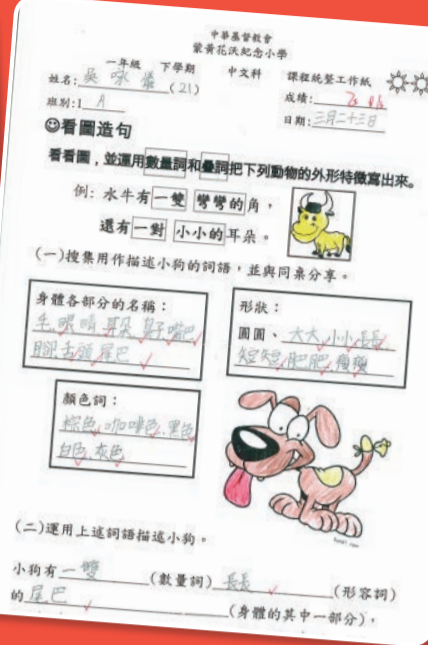 中華基督教會
蒙黃花沃紀念小學
一年級 下學期 中文科 課程統整工作紙
姓名:吳咏 (21) 成績:
班別:1 A 日期:三月二十三日
看圖造句
看看圖,並運用數量詞和疊詞把下列動物的外形特徵寫出來。
例:水牛有一雙 彎彎的角,
還有一對 小小的耳朵。
(一)搜集用作描述小狗的詞語,並與同桌分享。
身體各部分的名稱:
毛,眼睛,耳朵,鼻子,嘴巴
腳,舌頭,尾巴
形狀:
圓圓、大大,小小,長長
短短,肥肥,瘦瘦
顏色詞:
棕色,咖啡色,黑色
白色,灰色
(二)運用上述詞語描述小狗。
小狗有一雙(數量詞)長長(形容詞)
的尾巴(身體的其中一部分),